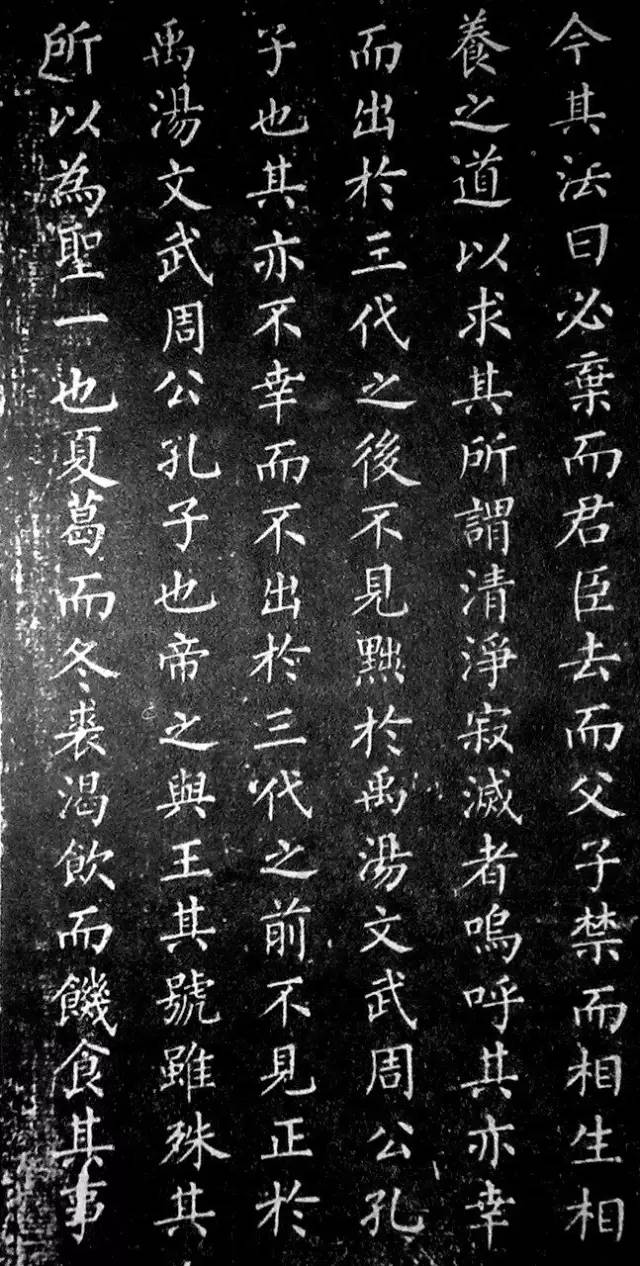 今其法曰必棄而君臣去而父子禁而相生相
養之道以求其所謂清淨寂滅者嗚呼其亦幸
而出於三代之後不見黜於禹湯文武周公孔
子也其亦不幸而不出於三代之前不見正於
禹湯文武周公孔子也帝之與王其號雖殊其
所以為聖一也夏葛而冬裘渴飲而饑食其事